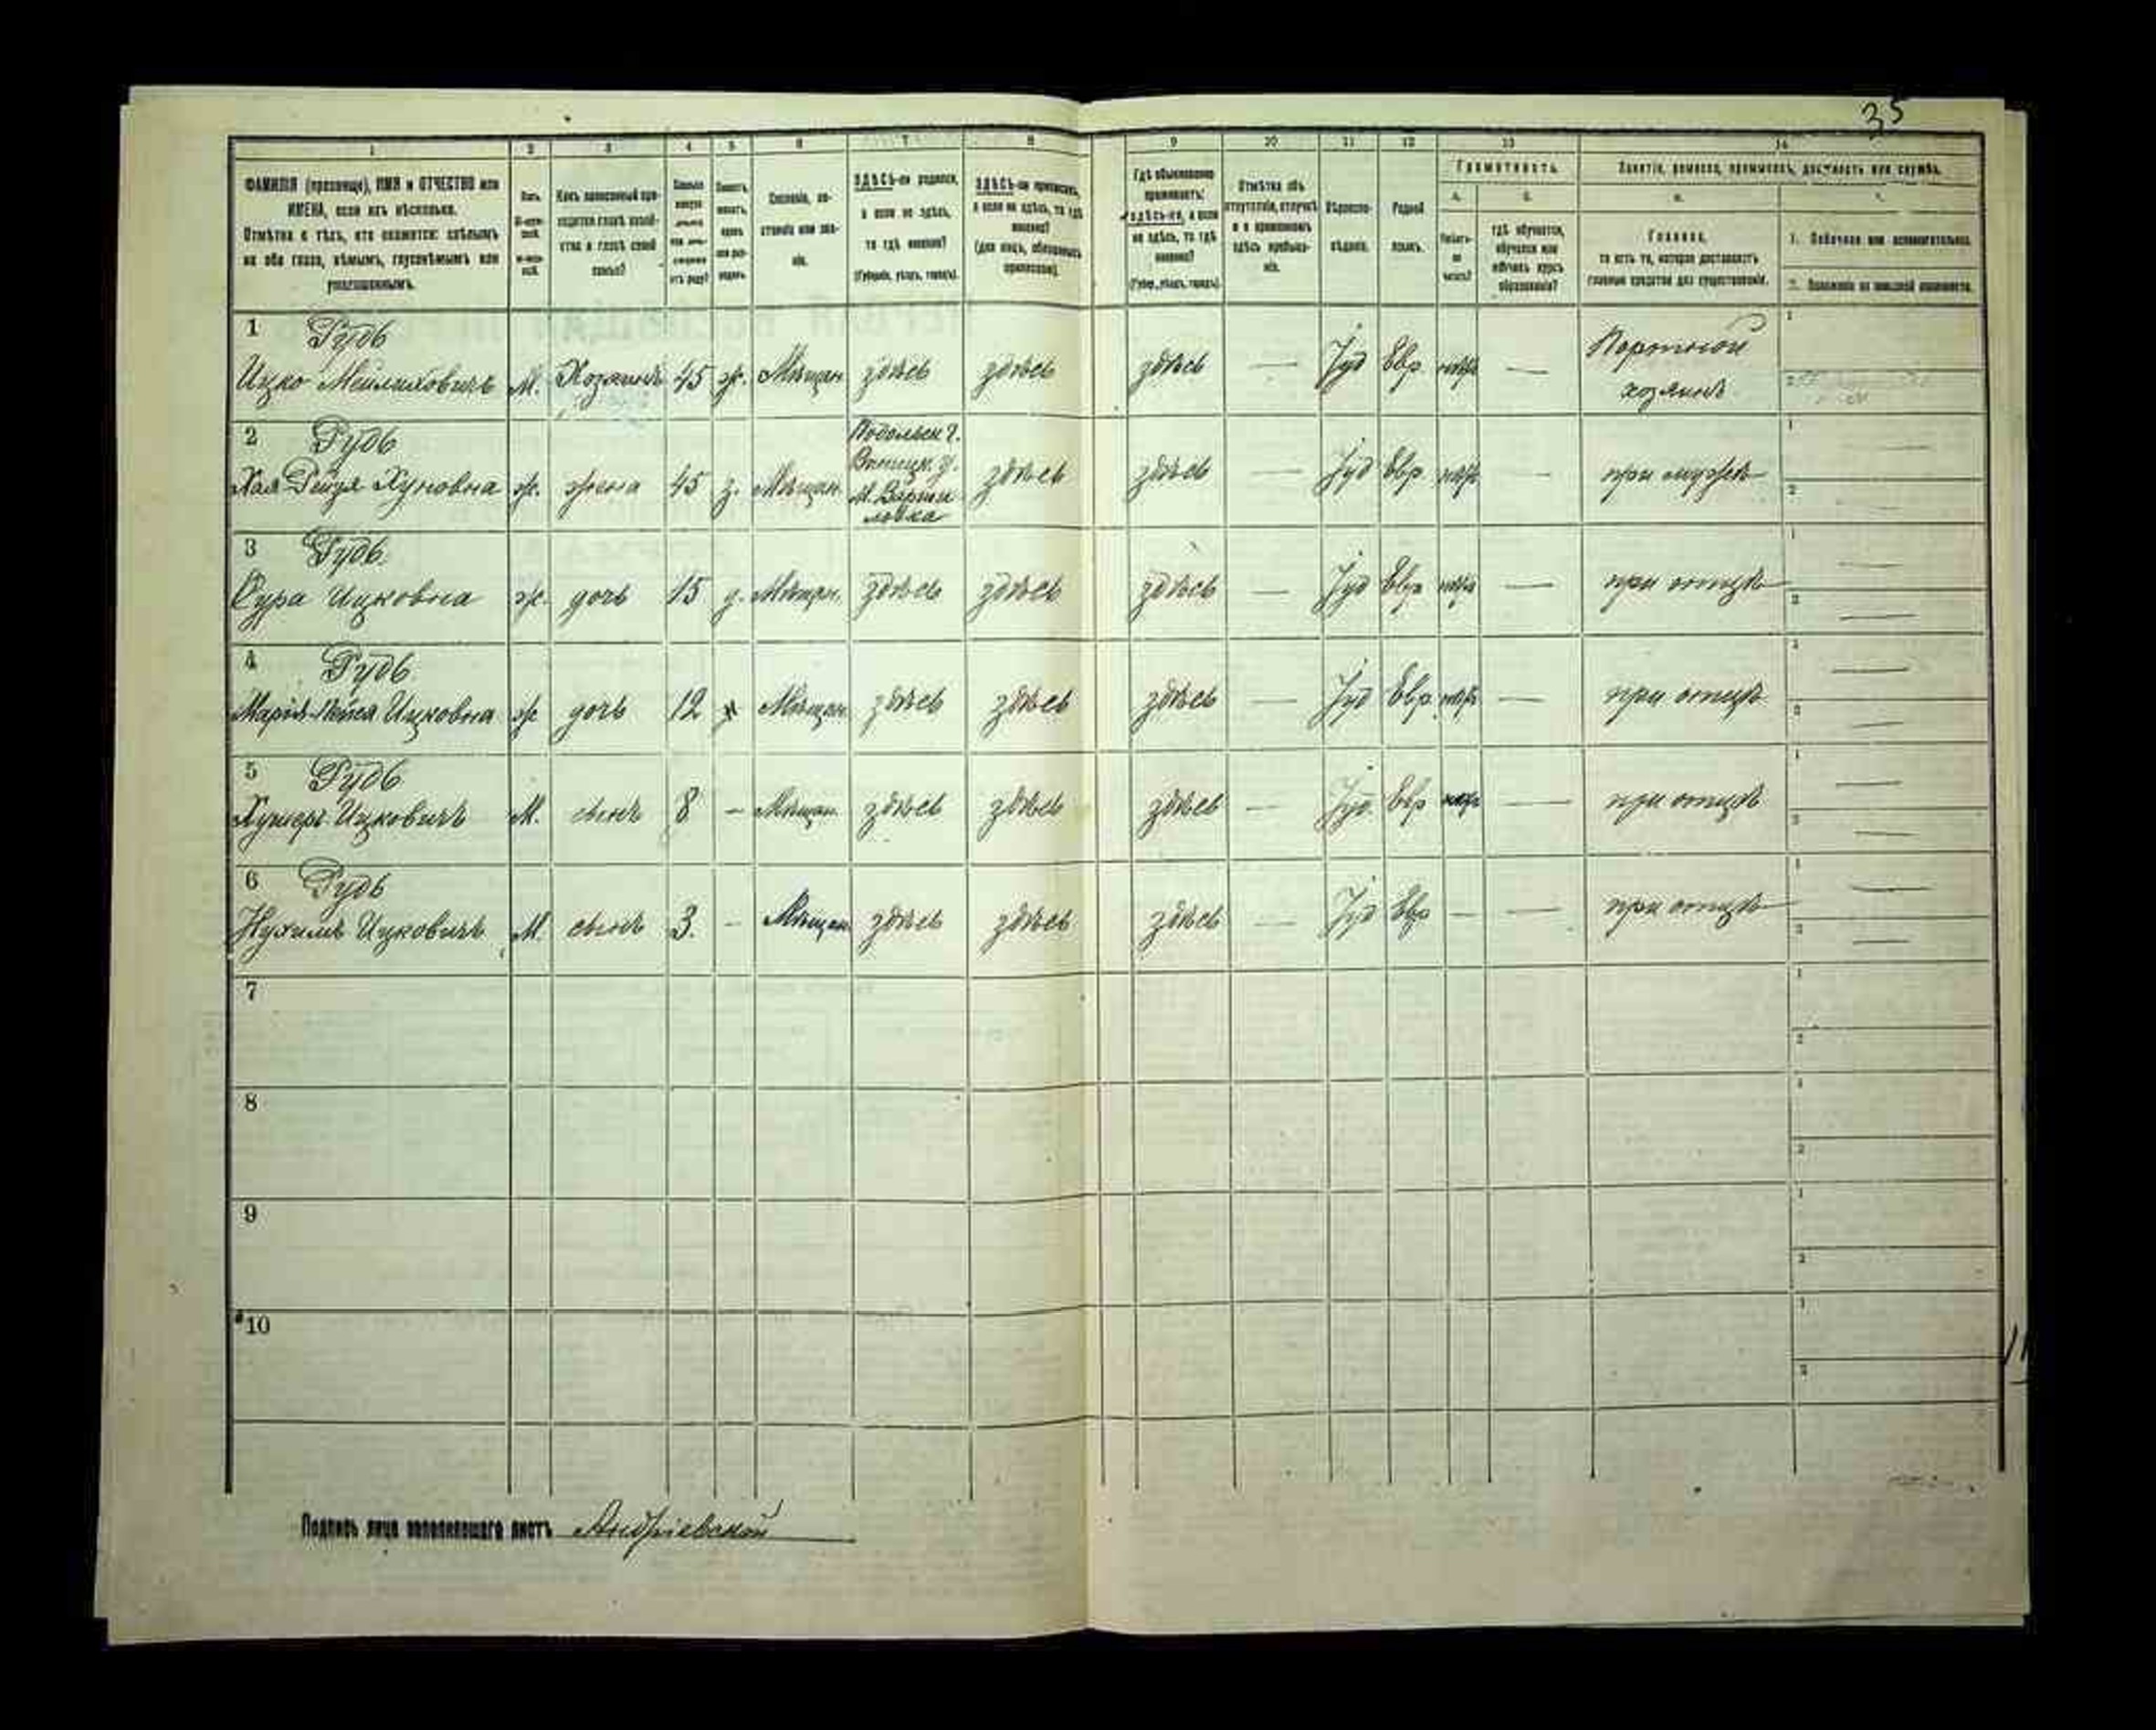 35
1 2 3 4 5 6 7 8 9 10 11 12 13 14
ФАМИЛІЯ (прозвище), ИМЯ и ОТЧЕСТВО или
ИМЕНА, если ихъ нѣсколько.
Отмѣтка о тѣхъ, кто окажется: слѣпымъ
на оба глаза, нѣмымъ, глухонѣмымъ или
умалишеннымъ.
Полъ.
Какъ записанный при-
ходится главѣ хозяй-
ства и главѣ своей
семьи?
Сословіе, со-
стояніе или зва-
ніе.
ЗДѢСЬ-ли родился,
а если не здѣсь,
то гдѣ именно?
(Губернія, уѣздъ, городъ).
ЗДѢСЬ-ли приписанъ,
а если не здѣсь, то гдѣ
именно?
(для лицъ, обязанныхъ
припискою).
Гдѣ обыкновенно
проживаетъ:
здѣсь-ли, а если
не здѣсь, то гдѣ
именно?
(Губер., уѣздъ, городъ).
Отмѣтка объ
отсутствіи, отлучкѣ
и о временномъ
здѣсь пребыва-
ніи.
Вѣроиспо-
вѣданіе.
Родной
языкъ.
Грамотность.
гдѣ обучается,
обучался или
кончилъ курсъ
образованія?
Занятіе, ремесло, промыселъ, должность или служба.
Главное,
то есть то, которое доставляетъ
главныя средства для существованія.
1. Побочное или вспомогательное.
2. Положеніе по воинской повинности.
1 Рудь
Ицко Мейлиховичъ М. Хозяинъ 45 ж. Мѣщан здѣсь здѣсь здѣсь — Іуд Евр — Портной
хозяинъ
2 Рудь
Хая Рейзя Хуновна ж. жена 45 з. Мѣщан. Подольск г.
Виницк. у.
М. Ворши
ловка
здѣсь здѣсь — Іуд Евр — при мужѣ
3 Рудь
Сура Ицковна ж. дочь 15 д. Мѣщан. здѣсь здѣсь здѣсь — Іуд Евр — при отцѣ
4 Рудь
Ицковна ж дочь 12 Мѣщан здѣсь здѣсь здѣсь — Іуд Евр — при отцѣ
5 Рудь
Ицковичъ М. сынъ 8 — Мѣщан. здѣсь здѣсь здѣсь — Іуд. Евр — при отцѣ
6 Рудь
Нухимъ Ицковичъ М. сынъ 3. — Мѣщан здѣсь здѣсь здѣсь — Іуд Евр — — при отцѣ
7
8
9
10
Подпись лица заполнявшаго листъ Андріевский